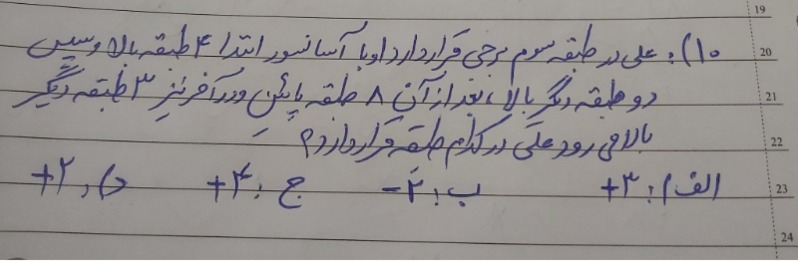 19
20 ۱۰): علی در طبقه سوم برجی قرار دارد او با آسانسور ابتدا ۴ طبقه بالا و سپس
21 دو طبقه دیگر بالا، بعد از آن ۸ طبقه پائین و در آخر نیز ۳ طبقه دیگر
22 بالا می رود علی در کدام طبقه قرار دارد؟
23 الف): ۳+ ب: ۲- ج: ۴+ د): ۲+
24